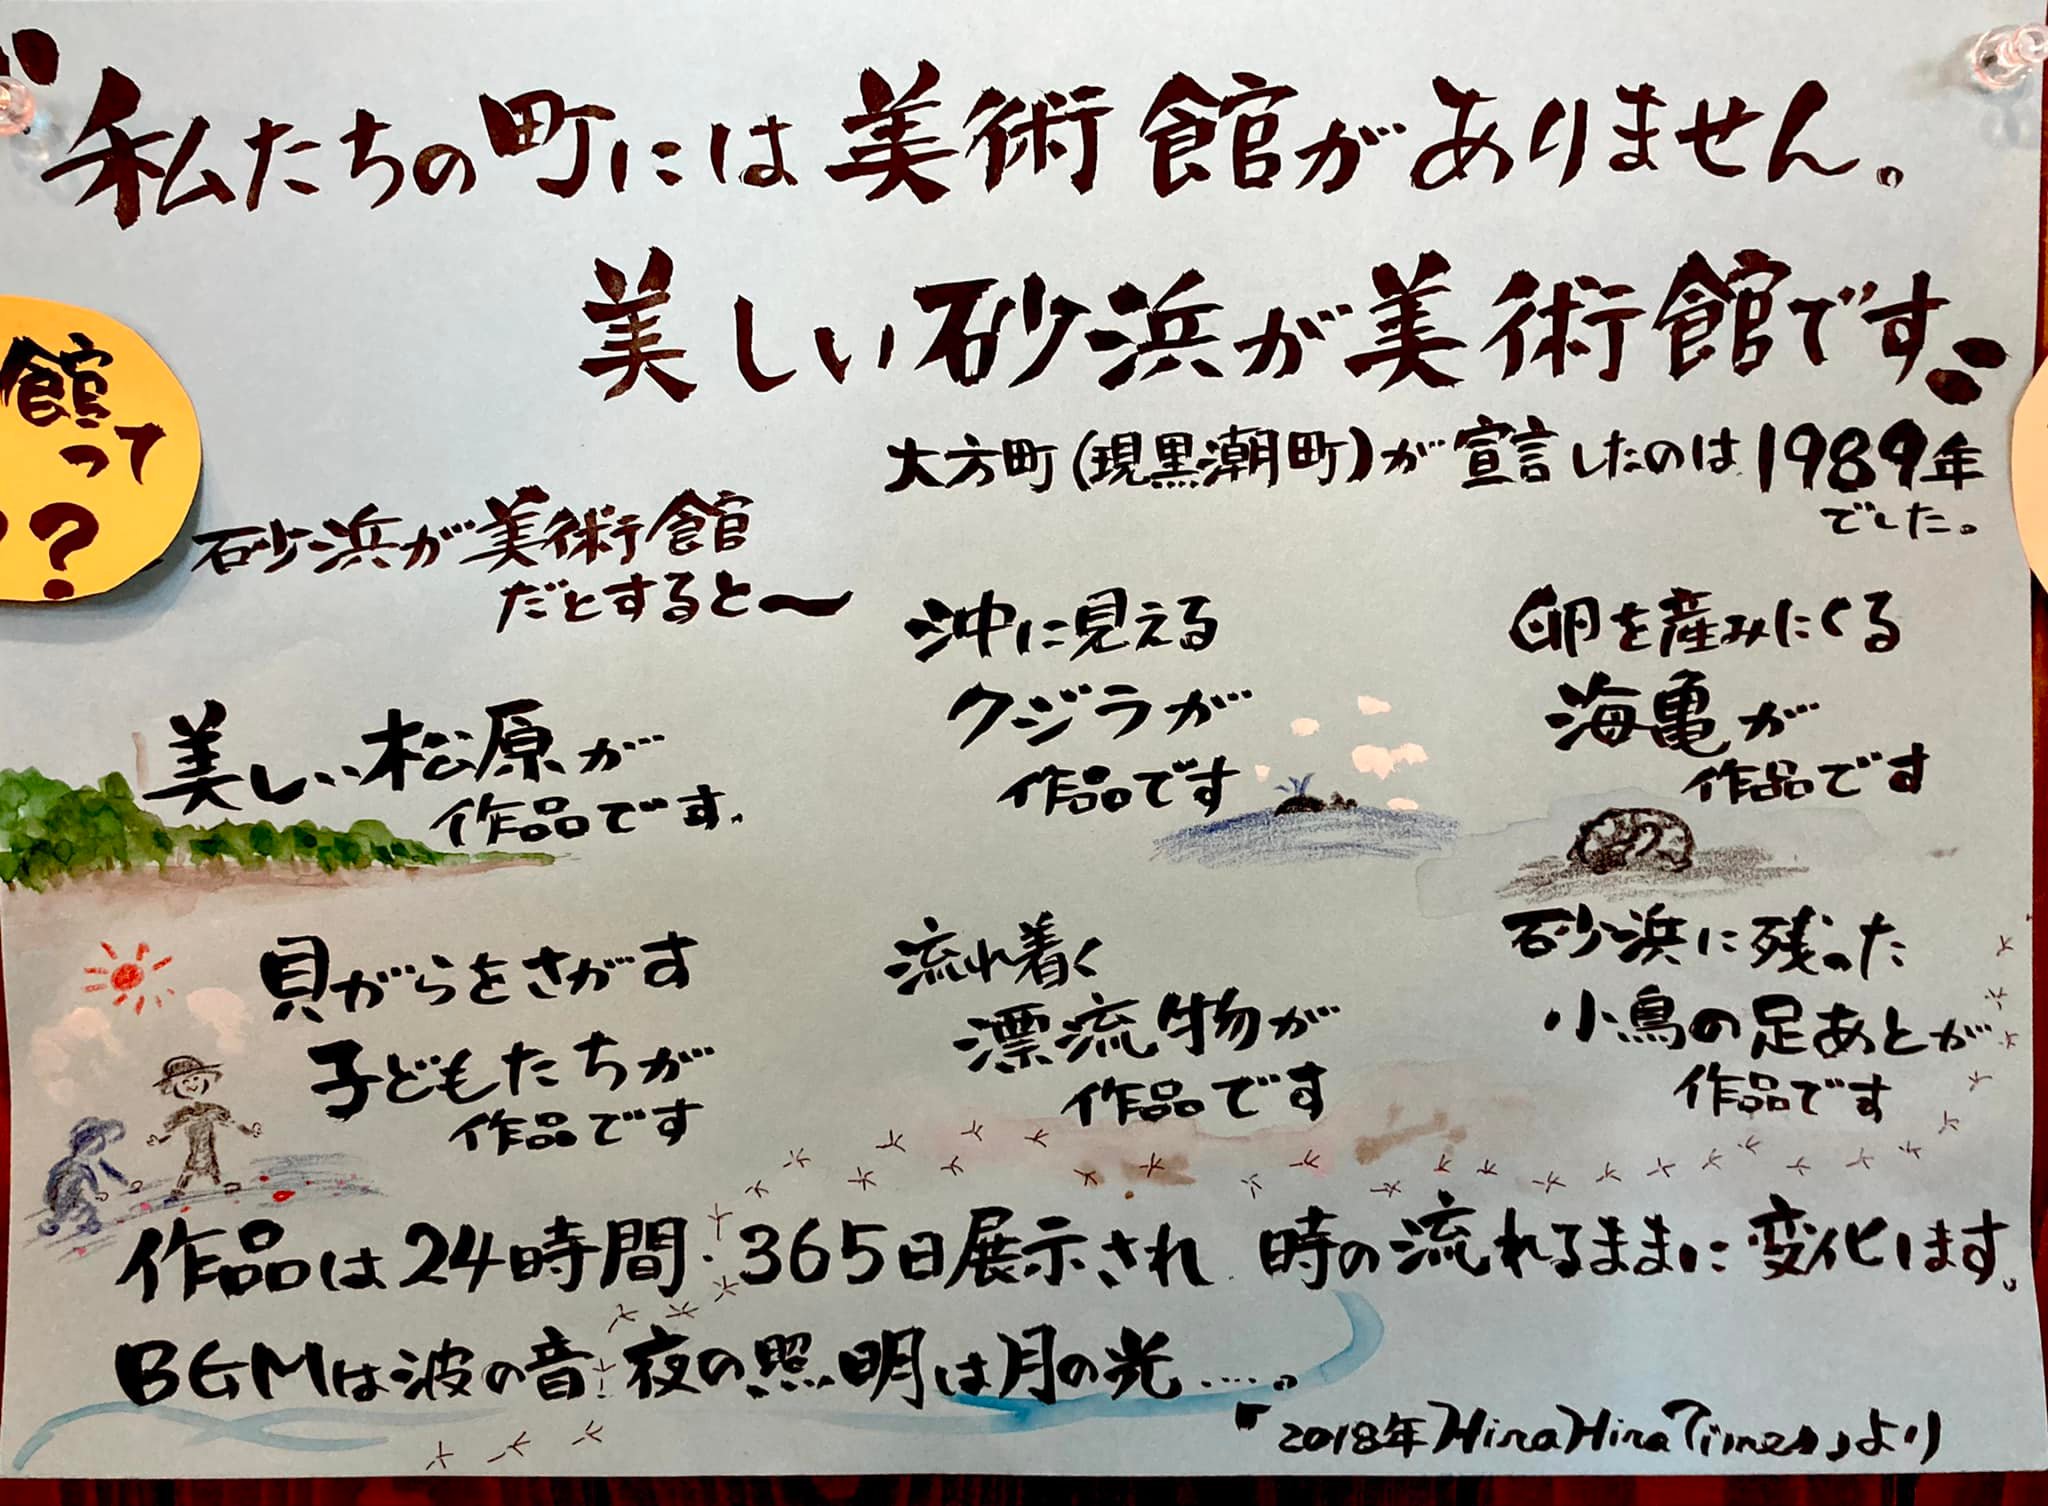 〝私たちの町には美術館がありません。
美しい砂浜が美術館です〟
大方町(現黒潮町)が宣言したのは1989年
でした。
館
って
?
砂浜が美術館
だとすると〜
美しい松原が
作品です.
沖に見える
クジラが
作品です
卵を産みにくる
海亀が
作品です
貝がらをさがす
子どもたちが
作品です
流れ着く
漂流物が
作品です
砂浜に残った
小鳥の足あとが
作品です
作品は24時間・365日展示され 時の流れるままに変化します。
BGMは波の音 夜の照明は月の光……。
「2018年HiraHiraTimes」より